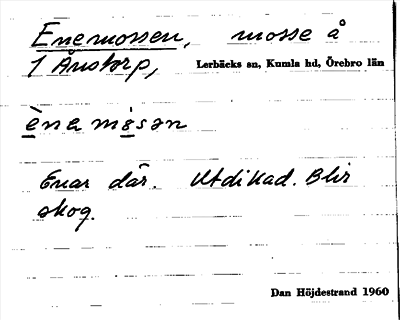 Enemossen, mosse å
1 Ånstorp, Lerbäcks sn, Kumla hd, Örebro län
èna mòsən
Enar där. Utdikad. Blir
skog.
Dan Höjdestrand 1960